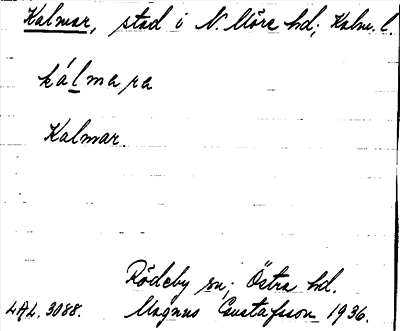 Kalmar, stad i N. Möre hd; Kalm. l.
kálmara
Kalmar.
Rödeby sn; Östra hd.
LAL. 3088. Magnus Gustafsson 1936.